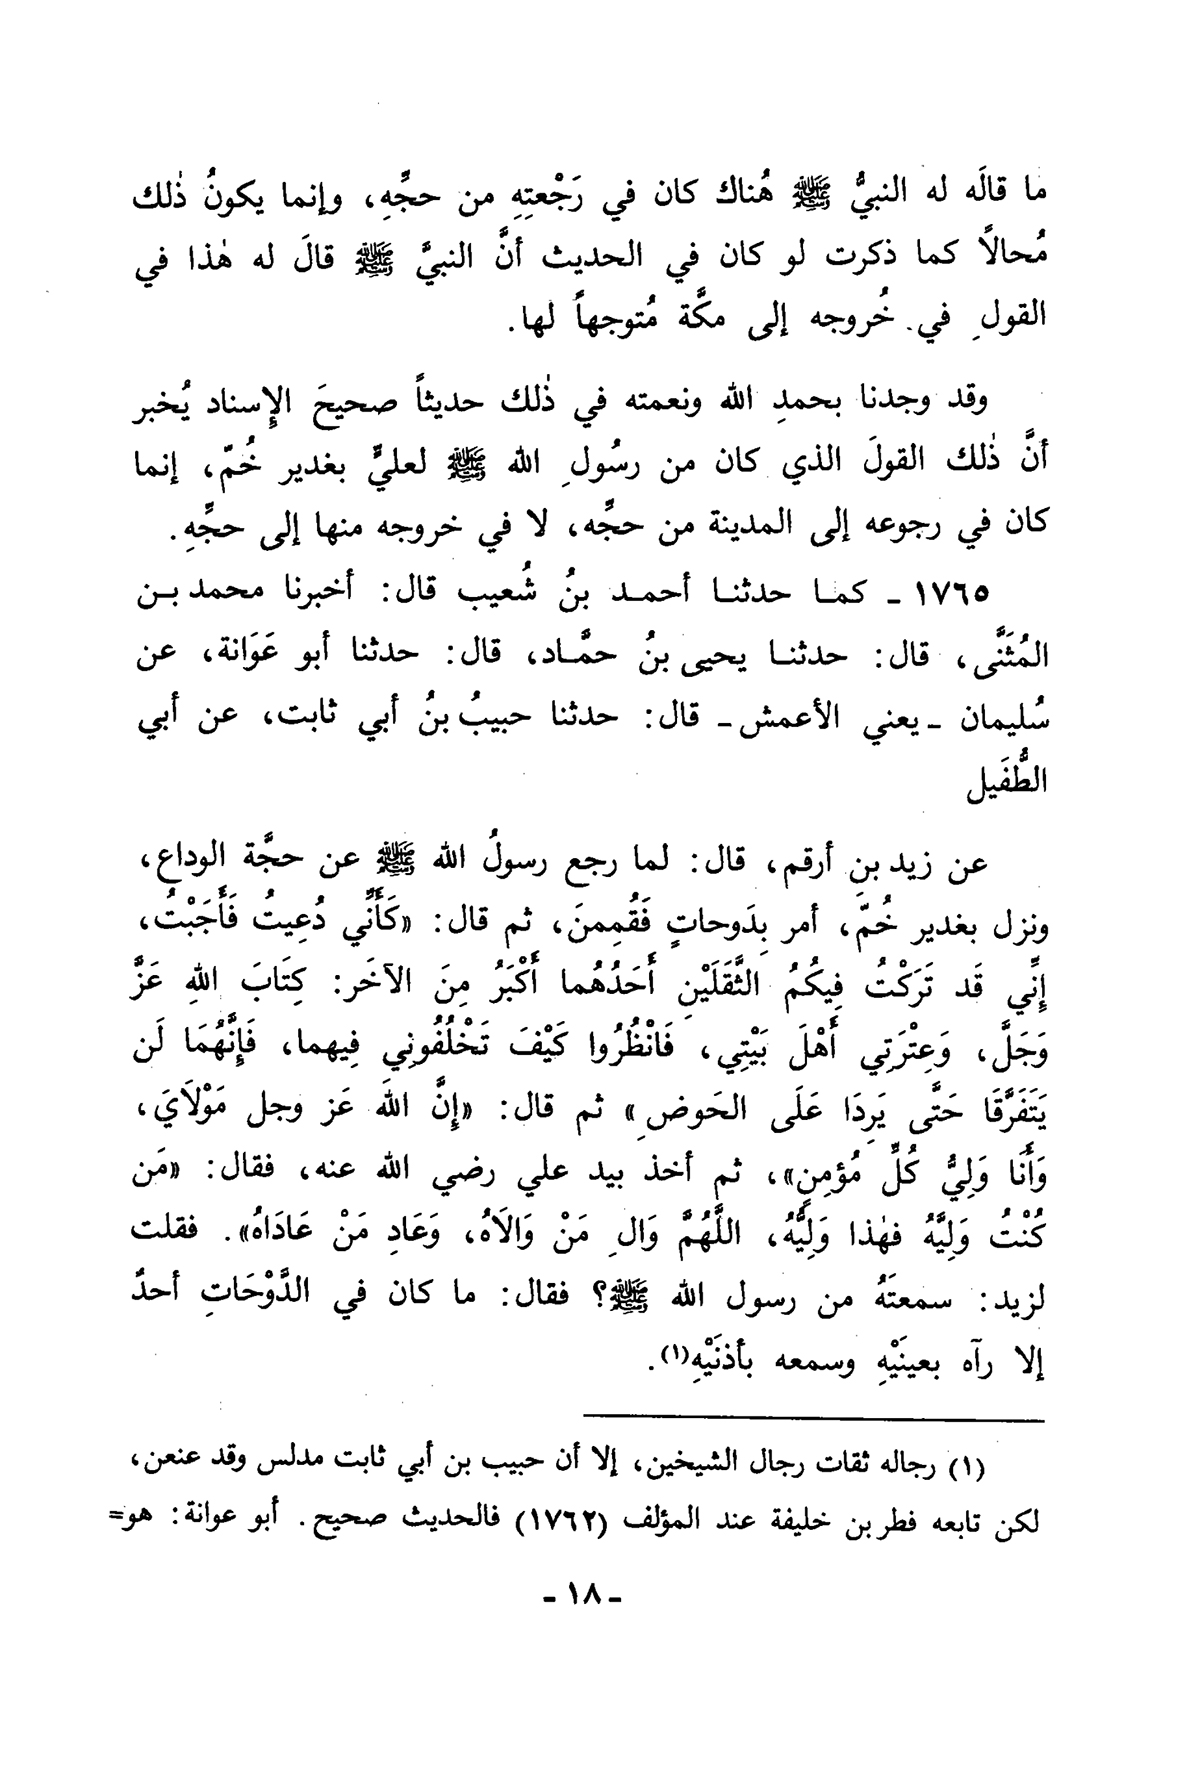 ما قالَه له النبيُّ ﷺ هُناك كان في رَجْعتِهِ من حجِّهِ، وإنما يكونُ ذٰلك
مُحالاً كما ذكرت لو كان في الحديث أنَّ النبيَّ ﷺ قالَ له هٰذا في
القولِ في خُروجه إلى مكَّة مُتوجهاً لها.
وقد وجدنا بحمدِ الله ونعمته في ذٰلك حديثاً صحيحَ الإِسناد يُخبر
أنَّ ذٰلك القولَ الذي كان من رسُولِ الله ﷺ لعليٍّ بغدير خُمّ، إنما
كان في رجوعه إلى المدينة من حجِّه، لا في خروجه منها إلى حجِّهِ.
١٧٦٥ ـ كما حدثنا أحمد بنُ شُعيب قال: أخبرنا محمد بن
المُثَنَّى، قال: حدثنا يحيى بنُ حمَّاد، قال: حدثنا أبو عَوَانة، عن
سُليمان ـ يعني الأعمش ـ قال: حدثنا حبيبُ بنُ أبي ثابت، عن أبي
الطُّفَيل
عن زيد بنِ أرقم، قال: لما رجع رسولُ الله ﷺ عن حجَّة الوداع،
ونزل بغدير خُمّ، أمر بِدَوحاتٍ فَقُمِمنَ، ثم قال: «كَأَنِّي دُعِيتُ فَأَجَبْتُ،
إِنِّي قَد تَرَكْتُ فِيكُمُ الثَّقَلَيْنِ أَحَدُهُما أَكْبَرُ مِنَ الآخَر: كِتَابَ اللهِ عَزَّ
وَجَلَّ، وَعِتْرَتِي أَهْلَ بَيْتِي، فَانْظُرُوا كَيْفَ تَخْلُفُونِي فِيهما، فَإِنَّهُمَا لَن
يَتَفَرَّقَا حَتَّى يَرِدَا عَلَى الحَوضِ» ثم قال: «إِنَّ اللهَ عَز وجل مَوْلَايَ،
وَأَنَا وَلِيُّ كُلِّ مُؤمِنٍ»، ثم أخذ بيد علي رضي الله عنه، فقال: «مَن
كُنْتُ وَلِيَّهُ فهٰذا وَلِيُّهُ، اللَّهُمَّ وَالِ مَنْ وَالَاهُ، وَعَادِ مَنْ عَادَاهُ». فقلت
لزيد: سمعتَهُ من رسول الله ﷺ؟ فقال: ما كان في الدَّوْحَاتِ أحدٌ
إلا رآه بعينَيْهِ وسمعه بأذنَيْهِ(١).
(١) رجاله ثقات رجال الشيخين، إلا أن حبيب بن أبي ثابت مدلس وقد عنعن،
لكن تابعه فطر بن خليفة عند المؤلف (١٧٦٢) فالحديث صحيح. أبو عوانة: هو=
ـ ١٨ ـ